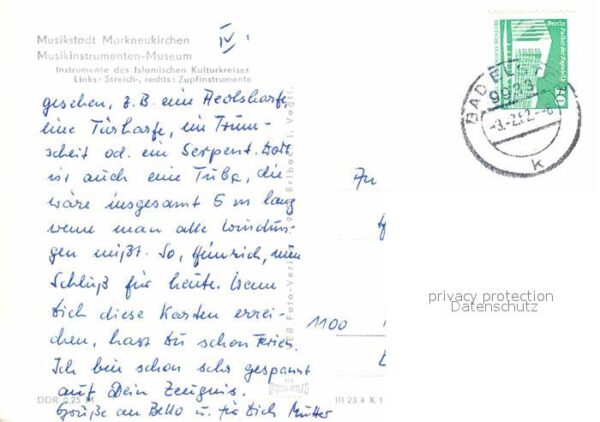 Musikstadt Markneukirchen
Musikinstrumenten-Museum
Instrumente des Islamischen Kulturkreises
Links: Streich-, rechts: Zupfinstrumente
IV.
gesehen, z.B. eine Aeolsharfe
eine Türharfe, ein Trum-
scheit od. ein Serpent. Dort
ist auch eine Tuba, die
wäre insgesamt 5 m lang
wenn man alle Windun-
gen mißt. So, Heinrich, nun
Schluß für heute. Wenn
Dich diese Karten errei-
chen, hast Du schon Ferien.
Ich bin schon sehr gespannt
auf Dein Zeugnis.
Grüße an Bello u. für Dich Mutter
DDR 0,25 M
VEB Foto-Verlag Erlbach i. Vogtl.
III 23 4 K 1
An
1100
Berlin, Palast der Republik
10
BAD ELSTER
9933
k
privacy protection
Datenschutz